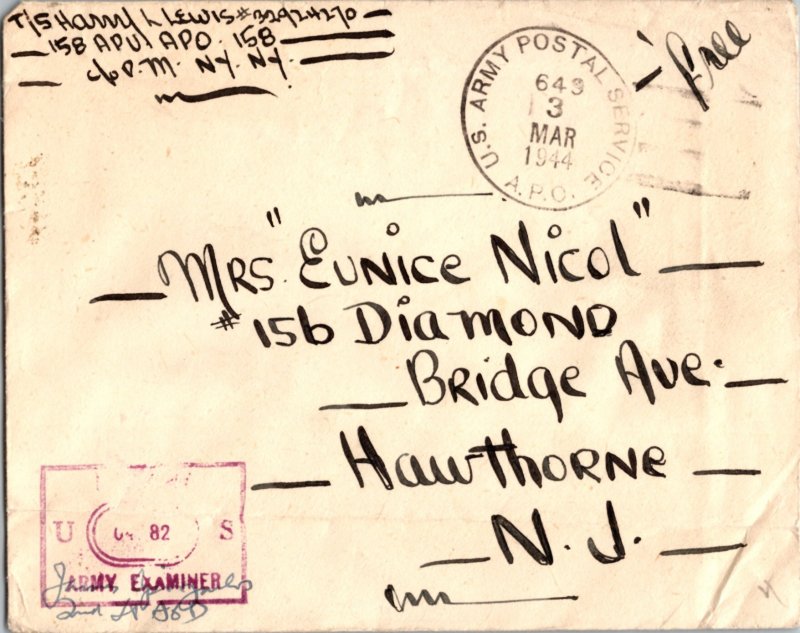 T/5 Harry L Lewis #32924270
158 APU, APO. 158
c/o P.M. N.Y. N.Y.
Free
U.S. ARMY POSTAL SERVICE
643
3
MAR
1944
A.P.O.
Mrs "Eunice Nicol"
#156 Diamond
Bridge Ave.
Hawthorne
N. J.
U 82 S
ARMY EXAMINER
2nd Lt
4